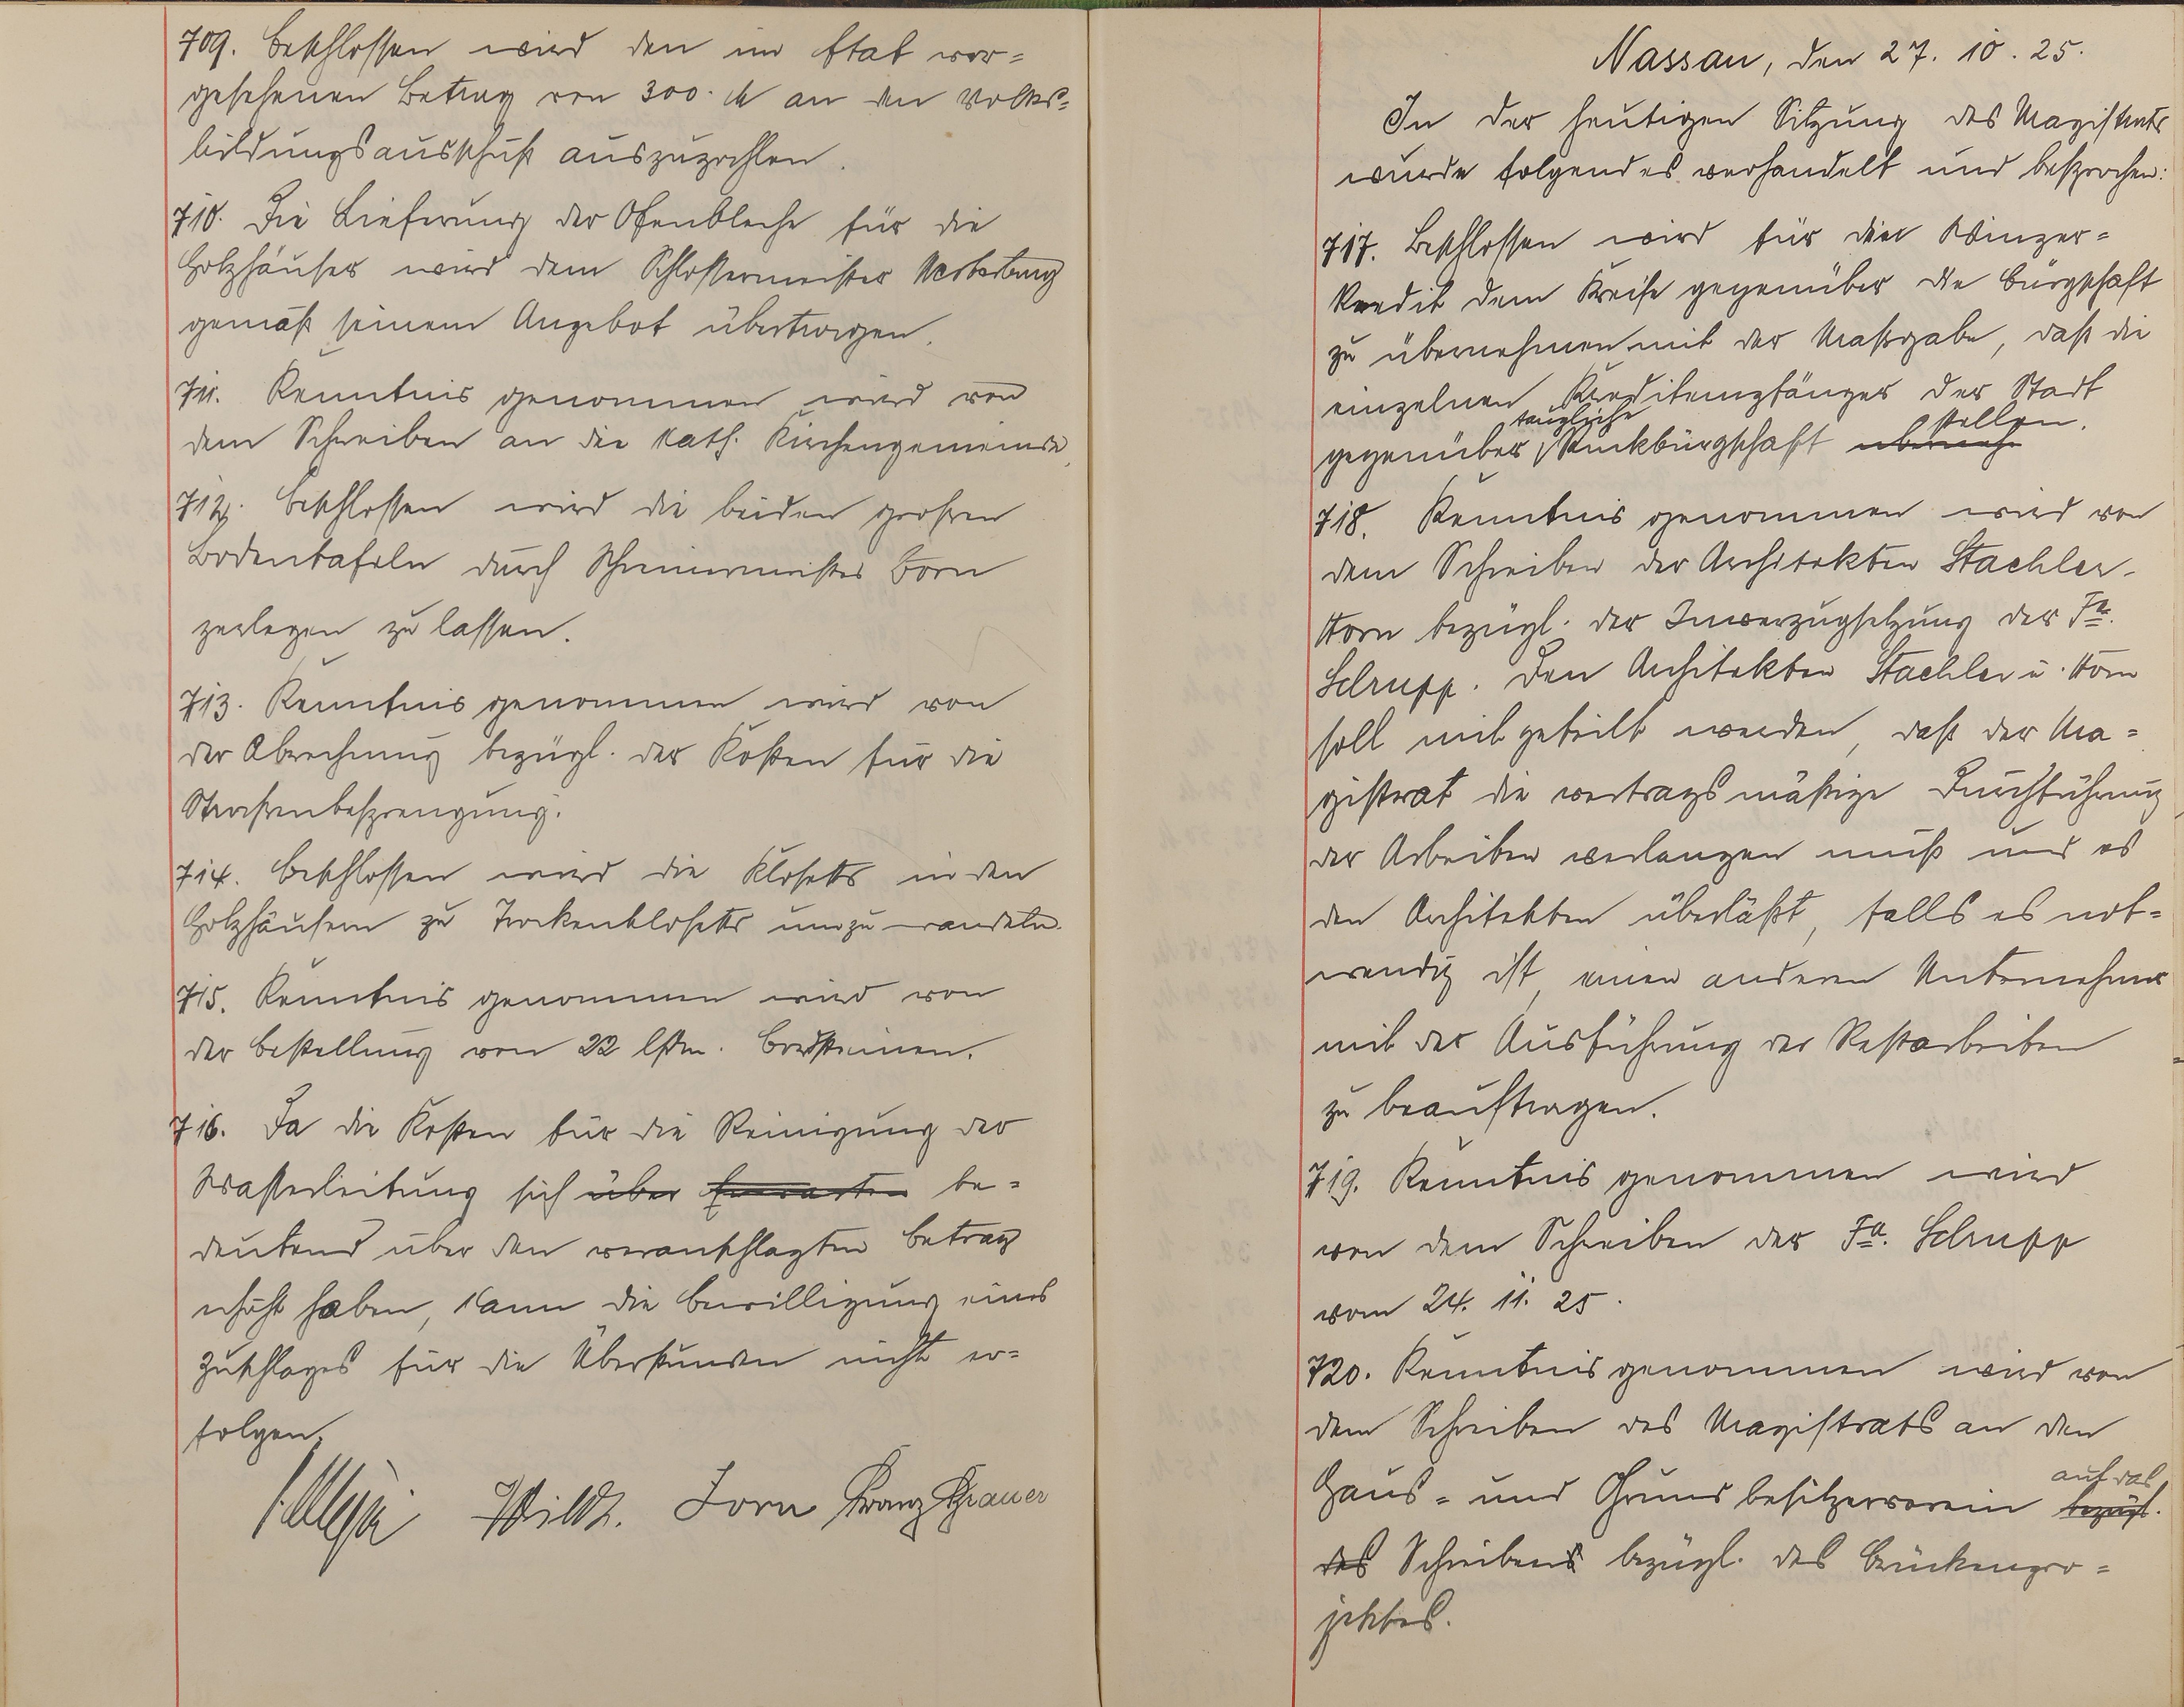 709. Beschlossen wird den im Etat vor-
gesehenen Betrag von 300. M an den Volks-
bildungsausschuß auszuzahlen.
710. Die Lieferung der Ofenbleche für die
Holzhäuser wird dem Schlossermeister
gemäß seinem Angebot übertragen.
711. Kenntnis genommen wird von
dem Schreiben an die kath. Kirchengemeinde.
712. Beschlossen wird die beiden großen
Bodentafeln durch Schreinermeister Born
zerlegen zu lassen.
713. Kenntnis genommen wird von
der Abrechnung bezügl. der Kosten für die
Straßenbesprengung.
714. Beschlossen wird die Klosetts in den
Holzhäusern zu Trockenklosetts umzuwandeln.
715. Kenntnis genommen wird von
der Bestellung von 22 lfdm. Bordsteinen.
716. Da die Kosten für die Reinigung der
Wasserleitung sich über Erwarten be-
deutend über den veranschlagten Betrag
erhöht haben, kann die Bewilligung eines
Zuschlages für die Überstunden nicht er-
folgen.
Born Franz
Nassau, den 27. 10. 25.
In der heutigen Sitzung des Magistrats
wurde folgendes verhandelt und besprochen:
717. Beschlossen wird für den Winzer-
kredit dem Kreise gegenüber die Bürgschaft
zu übernehmen mit der Maßgabe, daß die
einzelnen Kreditempfänger der Stadt
gegenüber taugliche Rückbürgschaft überneh stellen.
718. Kenntnis genommen wird von
dem Schreiben der Architekten Staehler-
Horn bezügl. der Inverzugsetzung der Fa.
Schrupp. Den Architekten Staehler u. Horn
soll mitgeteilt werden, daß der Ma-
gistrat die vertragsmäßige Durchführung
der Arbeiten verlangen muß und es
den Architekten überläßt, falls es not-
wendig ist, einen anderen Unternehmer
mit der Ausführung der Restarbeiten
zu beauftragen.
719. Kenntnis genommen wird
von dem Schreiben der Fa. Schrupp
vom 24. 11. 25.
720. Kenntnis genommen wird von
dem Schreiben des Magistrats an den
Haus- und Grundbesitzerverein bezügl. auf das
des Schreibens bezügl. des Brückenpro-
jektes.